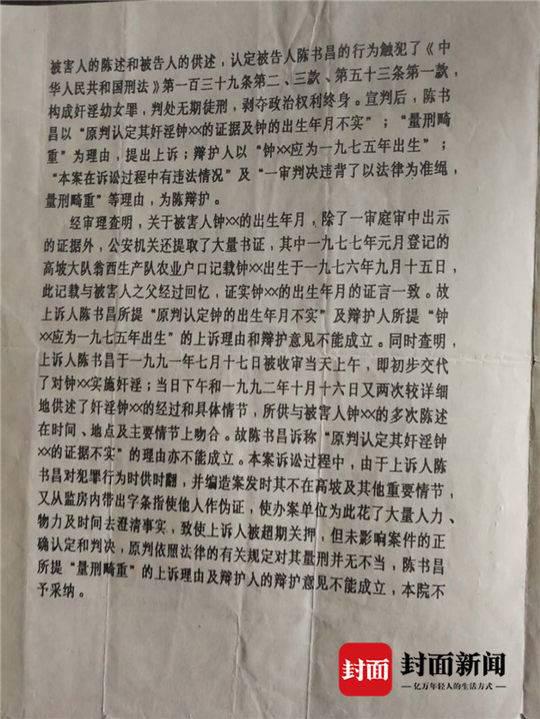 被害人的陈述和被告人的供述，认定被告人陈书昌的行为触犯了《中
华人民共和国刑法》第一百三十九条第二、三款、第五十三条第一款，
构成奸淫幼女罪，判处无期徒刑，剥夺政治权利终身。宣判后，陈书
昌以“原判认定其奸淫钟××的证据及钟的出生年月不实”；“量刑畸
重”为理由，提出上诉；辩护人以“钟××应为一九七五年出生”；
“本案在诉讼过程中有违法情况”及“一审判决违背了以法律为准绳，
量刑畸重”等理由，为陈辩护。
经审理查明，关于被害人钟××的出生年月，除了一审庭审中出示
的证据外，公安机关还提取了大量书证，其中一九七七年元月登记的
高坡大队翁西生产队农业户口记载钟××出生于一九七六年九月十五日，
此记载与被害人之父经过回忆，证实钟××的出生年月的证言一致。故
上诉人陈书昌所提“原判认定钟的出生年月不实”及辩护人所提“钟
××应为一九七五年出生”的上诉理由和辩护意见不能成立。同时查明，
上诉人陈书昌于一九九一年七月十七日被收审当天上午，即初步交代
了对钟××实施奸淫；当日下午和一九九二年十月十六日又两次较详细
地供述了奸淫钟××的经过和具体情节，所供与被害人钟××的多次陈述
在时间、地点及主要情节上吻合。故陈书昌诉称“原判认定其奸淫钟
××的证据不实”的理由亦不能成立。本案诉讼过程中，由于上诉人陈
书昌对犯罪行为时供时翻，并编造案发时其不在高坡及其他重要情节，
又从监房内带出字条指使他人作伪证，使办案单位为此花了大量人力、
物力及时间去澄清事实，致使上诉人被超期关押，但未影响案件的正
确认定和判决，原判依照法律的有关规定对其量刑并无不当，陈书昌
所提“量刑畸重”的上诉理由及辩护人的辩护意见不能成立，本院不
予采纳。
封面 封面新闻
亿万年轻人的生活方式